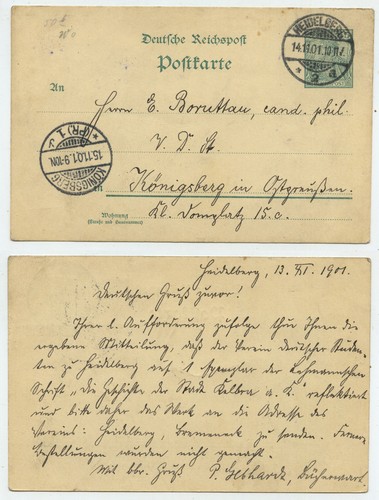 Deutsche Reichspost
Postkarte
HEIDELBERG
14.11.01.10-11V.
* 2 d
An
Herrn E. Boruttau, cand. phil.
V. D. St.
KÖNIGSBERG
15.11.01.9-10N.
* (PR.) 1
in Königsberg in Ostpreußen.
Wohnung Kl. Domplatz 15.c.
(Straße und Hausnummer)
Heidelberg, 13. XI. 1901.
Deutschen Gruß zuvor!
Ihrer l. Aufforderung zufolge thue Ihnen die
ergebene Mitteilung, daß der Verein deutscher Studen-
ten zu Heidelberg auf 1 Exemplar der Lehmannschen
Schrift „Die Geschichte der Stadt Kelbra a. K. reflektiert
und bitte daher das Werk an die Adresse des
Vereins: Heidelberg, Bremeneck zu senden. Fernere
Bestellungen wurden nicht gemacht.
Mit bbr. Gruß P. Gebhardt, Bücherwart.